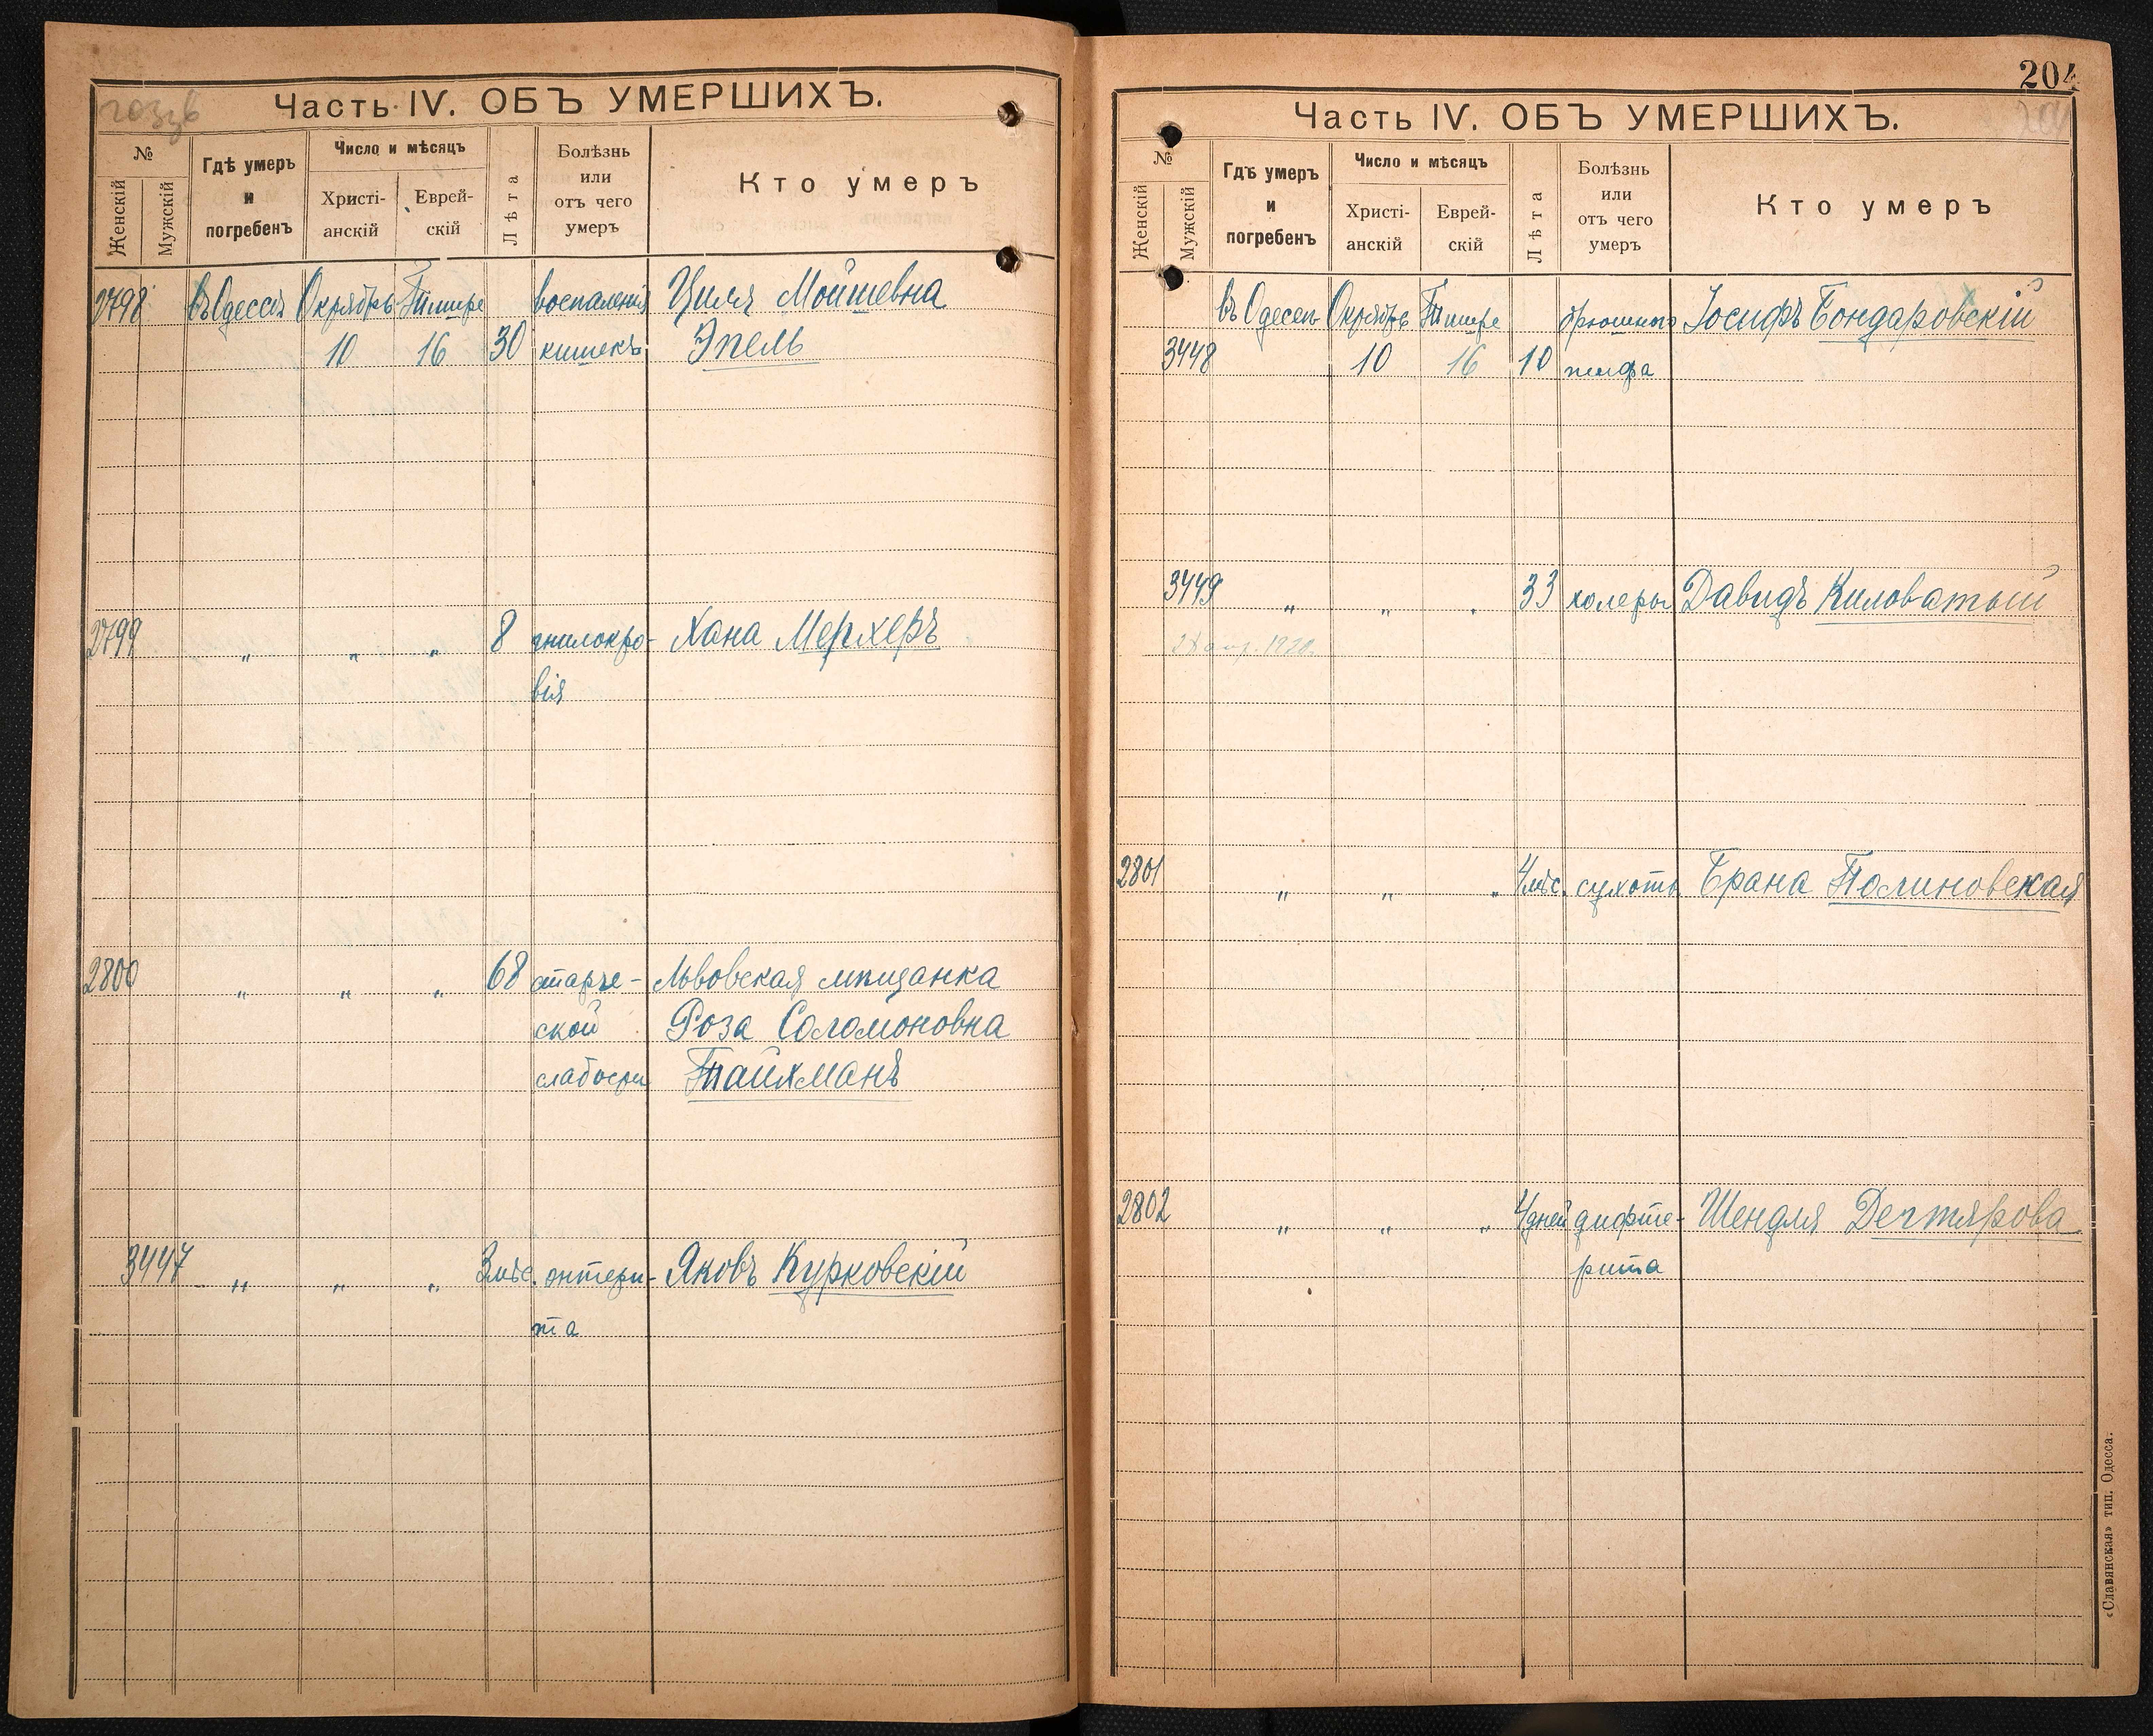 203зв
Часть IV. ОБЪ УМЕРШИХЪ.
№
Женскій
Мужскій
Гдѣ умеръ
и
погребенъ
Число и мѣсяцъ
Христі-
анскій
Еврей-
скій
Лѣта
Болѣзнь
или
отъ чего
умеръ
Кто умеръ
2798 въ Одессѣ Октябрь Тишре воспаленія Циля Мойшевна
10 16 30 кишекъ Эпель
2799 " " " 8 гнилокро- Хана Мерхеръ
вія
2800 " " " 68 старче- Львовская мѣщанка
ской Роза Соломоновна
слабости Тайхманъ
3447 " " " 3 мѣс. энтери- Яковъ Курковскій
та
204
Часть IV. ОБЪ УМЕРШИХЪ.
№
Женскій
Мужскій
Гдѣ умеръ
и
погребенъ
Число и мѣсяцъ
Христі-
анскій
Еврей-
скій
Лѣта
Болѣзнь
или
отъ чего
умеръ
Кто умеръ
въ Одессѣ Октябрь Тишре брюшного Іосифъ Бондаровскій
3448 10 16 10 тифа
3449 " " " 33 холеры Давидъ Киловатый
1920
2801 " " " 4 мѣс. сухоты Брана Полиновская
2802 " " " 4 дней дифте- Шендля Дегтярова
рита
«Славянская» тип. Одесса.